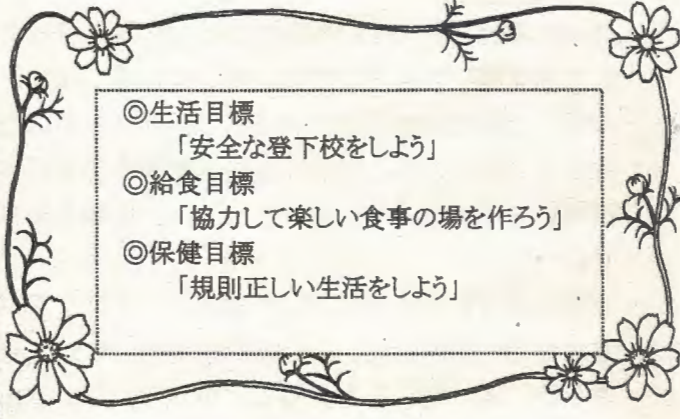 ◎生活目標
「安全な登下校をしよう」
◎給食目標
「協力して楽しい食事の場を作ろう」
◎保健目標
「規則正しい生活をしよう」